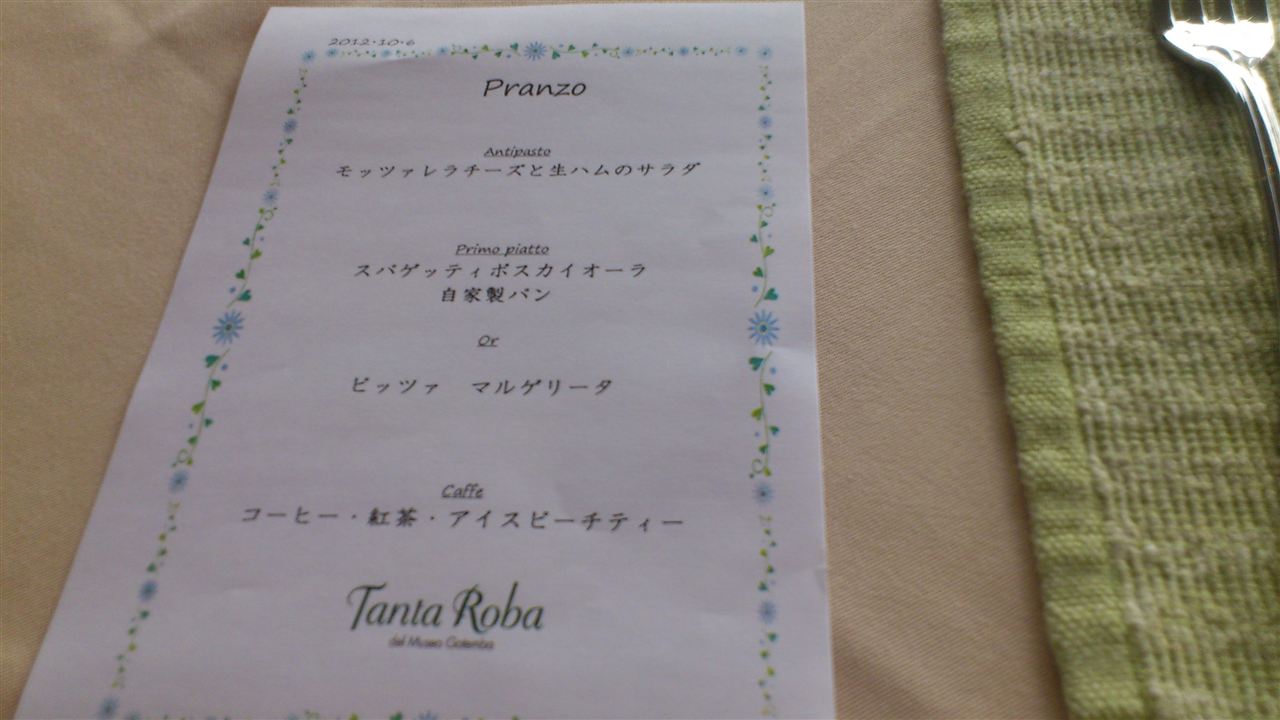 2012・10・6
Pranzo
Antipasto
モッツァレラチーズと生ハムのサラダ
Primo piatto
スパゲッティボスカイオーラ
自家製パン
Or
ピッツァ　マルゲリータ
Caffe
コーヒー・紅茶・アイスピーチティー
Tanta Roba
del Museo Gotemba